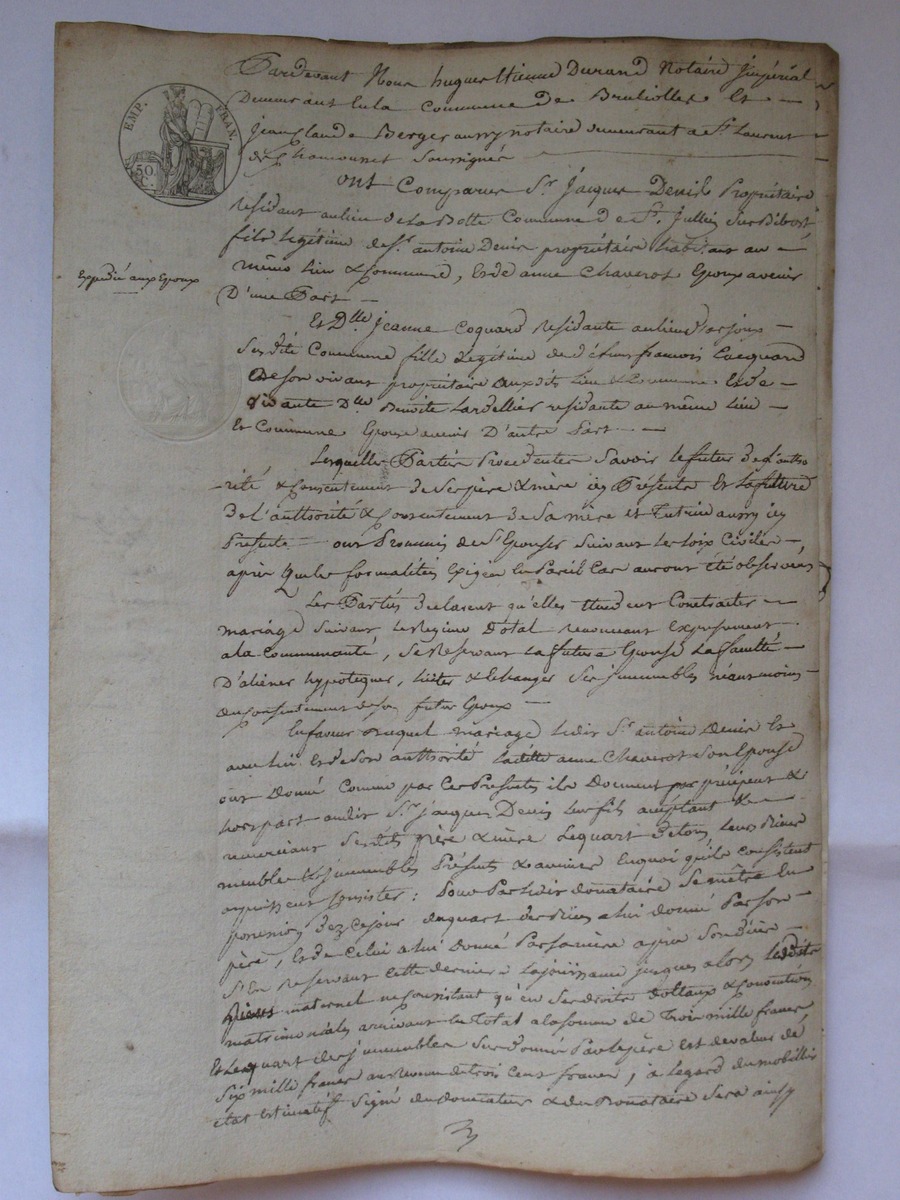 EMP. FRAN.
50 C.
Pardevant Nous hugues Etienne Durand Notaire Impérial
Demeurant En la Commune de Brullioles Et
Jean Claude Berger aussy notaire demeurant a St. Laurent
de Chamousset Soussignés
ont Comparu Sr. Jacques Denis Propriétaire
résidant au lieu de la Commune de St. Jullien Sur Bibost
fils légitime de Sr. antoine Denis propriétaire habitant au
même lieu & Commune, Et de anne Chaverot Epoux avenir
D'une Part
Expédié aux Epoux
Et Dlle Jeanne Coquard residante au lieu
Susdite Commune fille légitime de défunt francois Coquard
de Son vivant propriétaire auxdits lieu & Commune Et de
vivante Dlle Benoite Lardellier residante au même lieu
Et Commune Epouse avenir D'autre Part
Lesquelles Parties Procédentes Savoir le futur de l'autho
-rité & Consentement de Ses père & mère icy Présents Et la future
de l'authorité & Consentement de Sa mère et tutrice aussy icy
Présente ont Promis de S'Epouser Suivant les loix Civiles,
après que les formalités Exigées En Pareil Cas auront été observées
Les Parties déclarent qu'elles Contracter
mariage Suivant le Régime Dotal renonçant Expressément
a la Communauté, Se Reservant la future Epouse la faculté
D'aliéner hypotequer, & Echanger Ses immeubles néanmoins
du Consentement de Son futur Epoux
En faveur duquel mariage ledit Sr. antoine Denis Et
avec lui Et de Son authorité ladite anne Chaverot Son Epouse
ont Donné Comme par Ces Présentes ils Donnent par préciput &
hors part audit Sr. Jacques Denis leur fils acceptant &
remerciant Sesdits père & mère Le quart de tous leurs Biens
meubles & immeubles Présents & avenir En quoi qu'ils consistent
& puissent Consister: Pour Par ledit donataire Se mettre En
possession dez ce jour du quart des Biens a lui donné Par Son
père, Et de Celui a lui donné Par Sa mère après Son décès
S'En reservant cette dernière la jouissance jusques alors Lesdits
Biens maternel ne Consistant qu'en Ses droits dottaux & Conventions
matrimoniales arrivant En Total a la Somme de Trois mille francs
Et le quart des immeubles Susdonnés Par le père Est de valeur de
Six mille francs au revenu de trois Cent francs; a l'égard du mobillier
état Estimatif Signé du donateur & du Donataire Sera ainsy